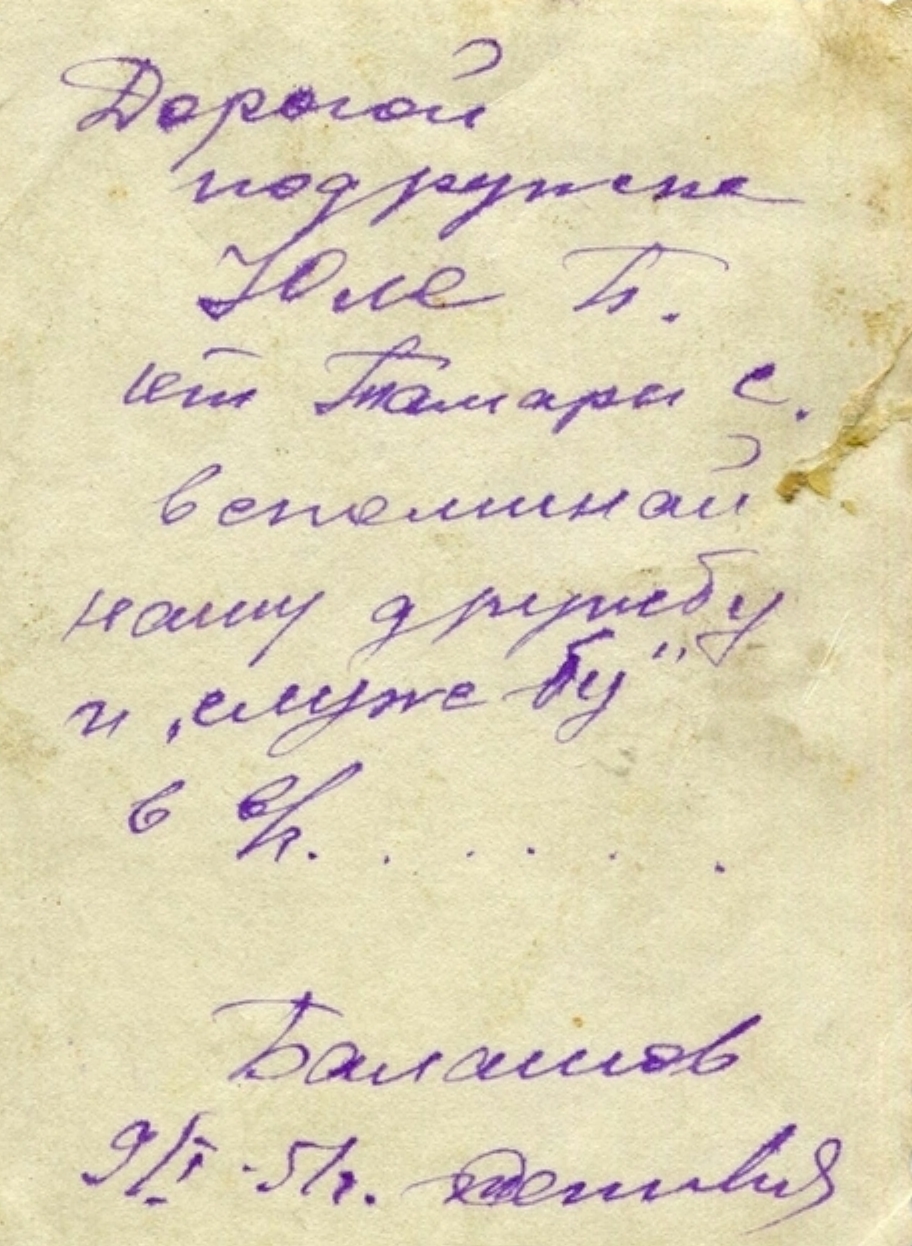 Дорогой
подружке
Юле Б.
от Тамары С.
вспоминай
нашу дружбу
и „службу"
в в/ч. . . . . .
Балашов
9/I-51г.